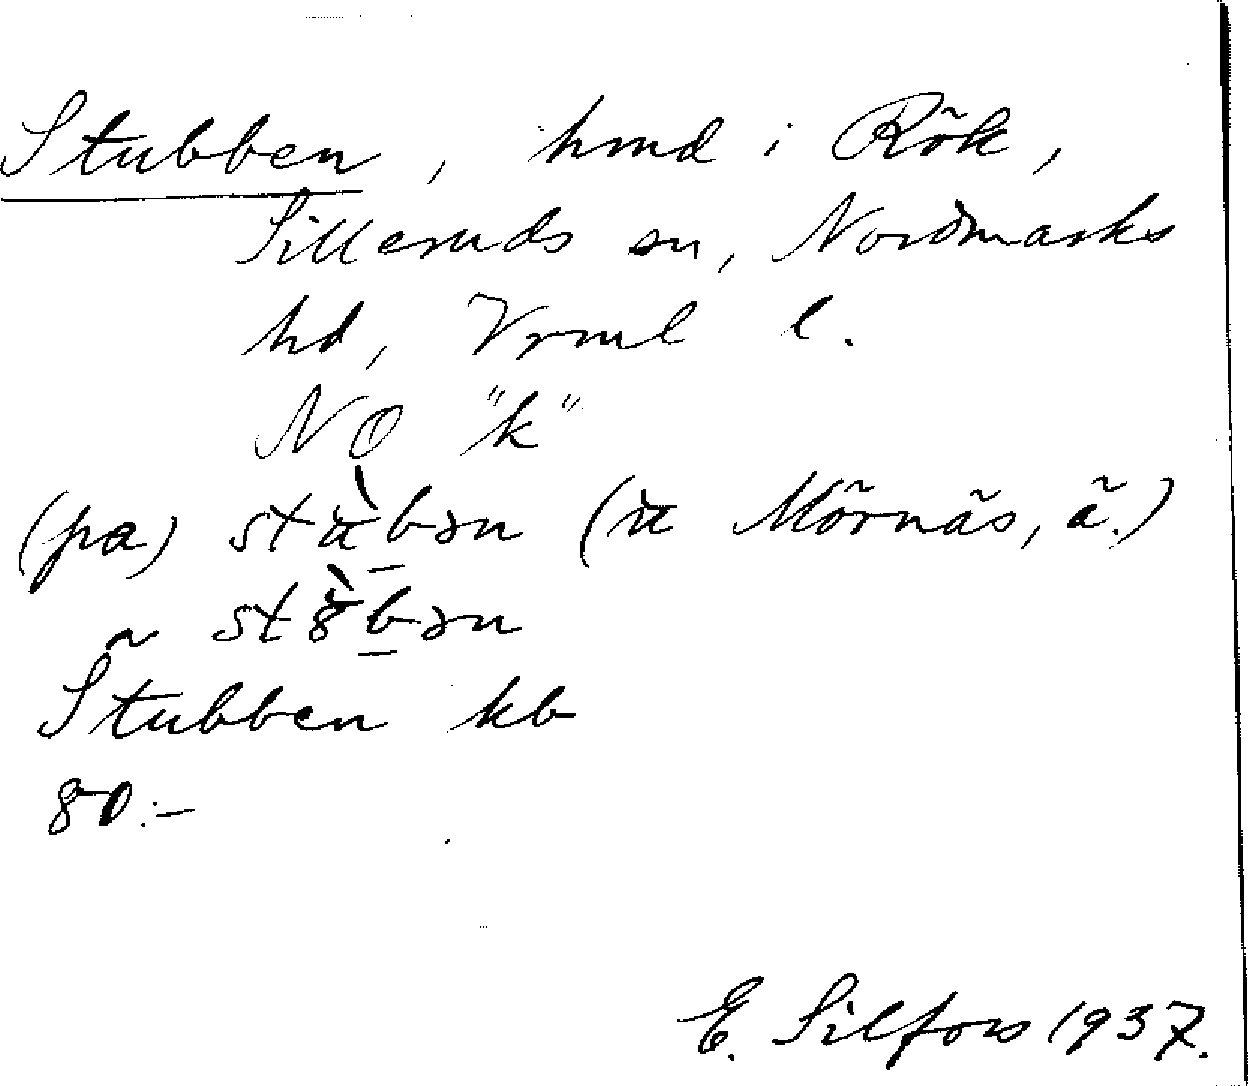 Stubben, hmd i Rök,
Silleruds sn, Nordmarks
hd, Vrml l.
NO "k"
(pa) stàbən (u Mörnäs, ä.)
~ st8̀bən
Stubben kb
80:-
E. Silfors 1937.